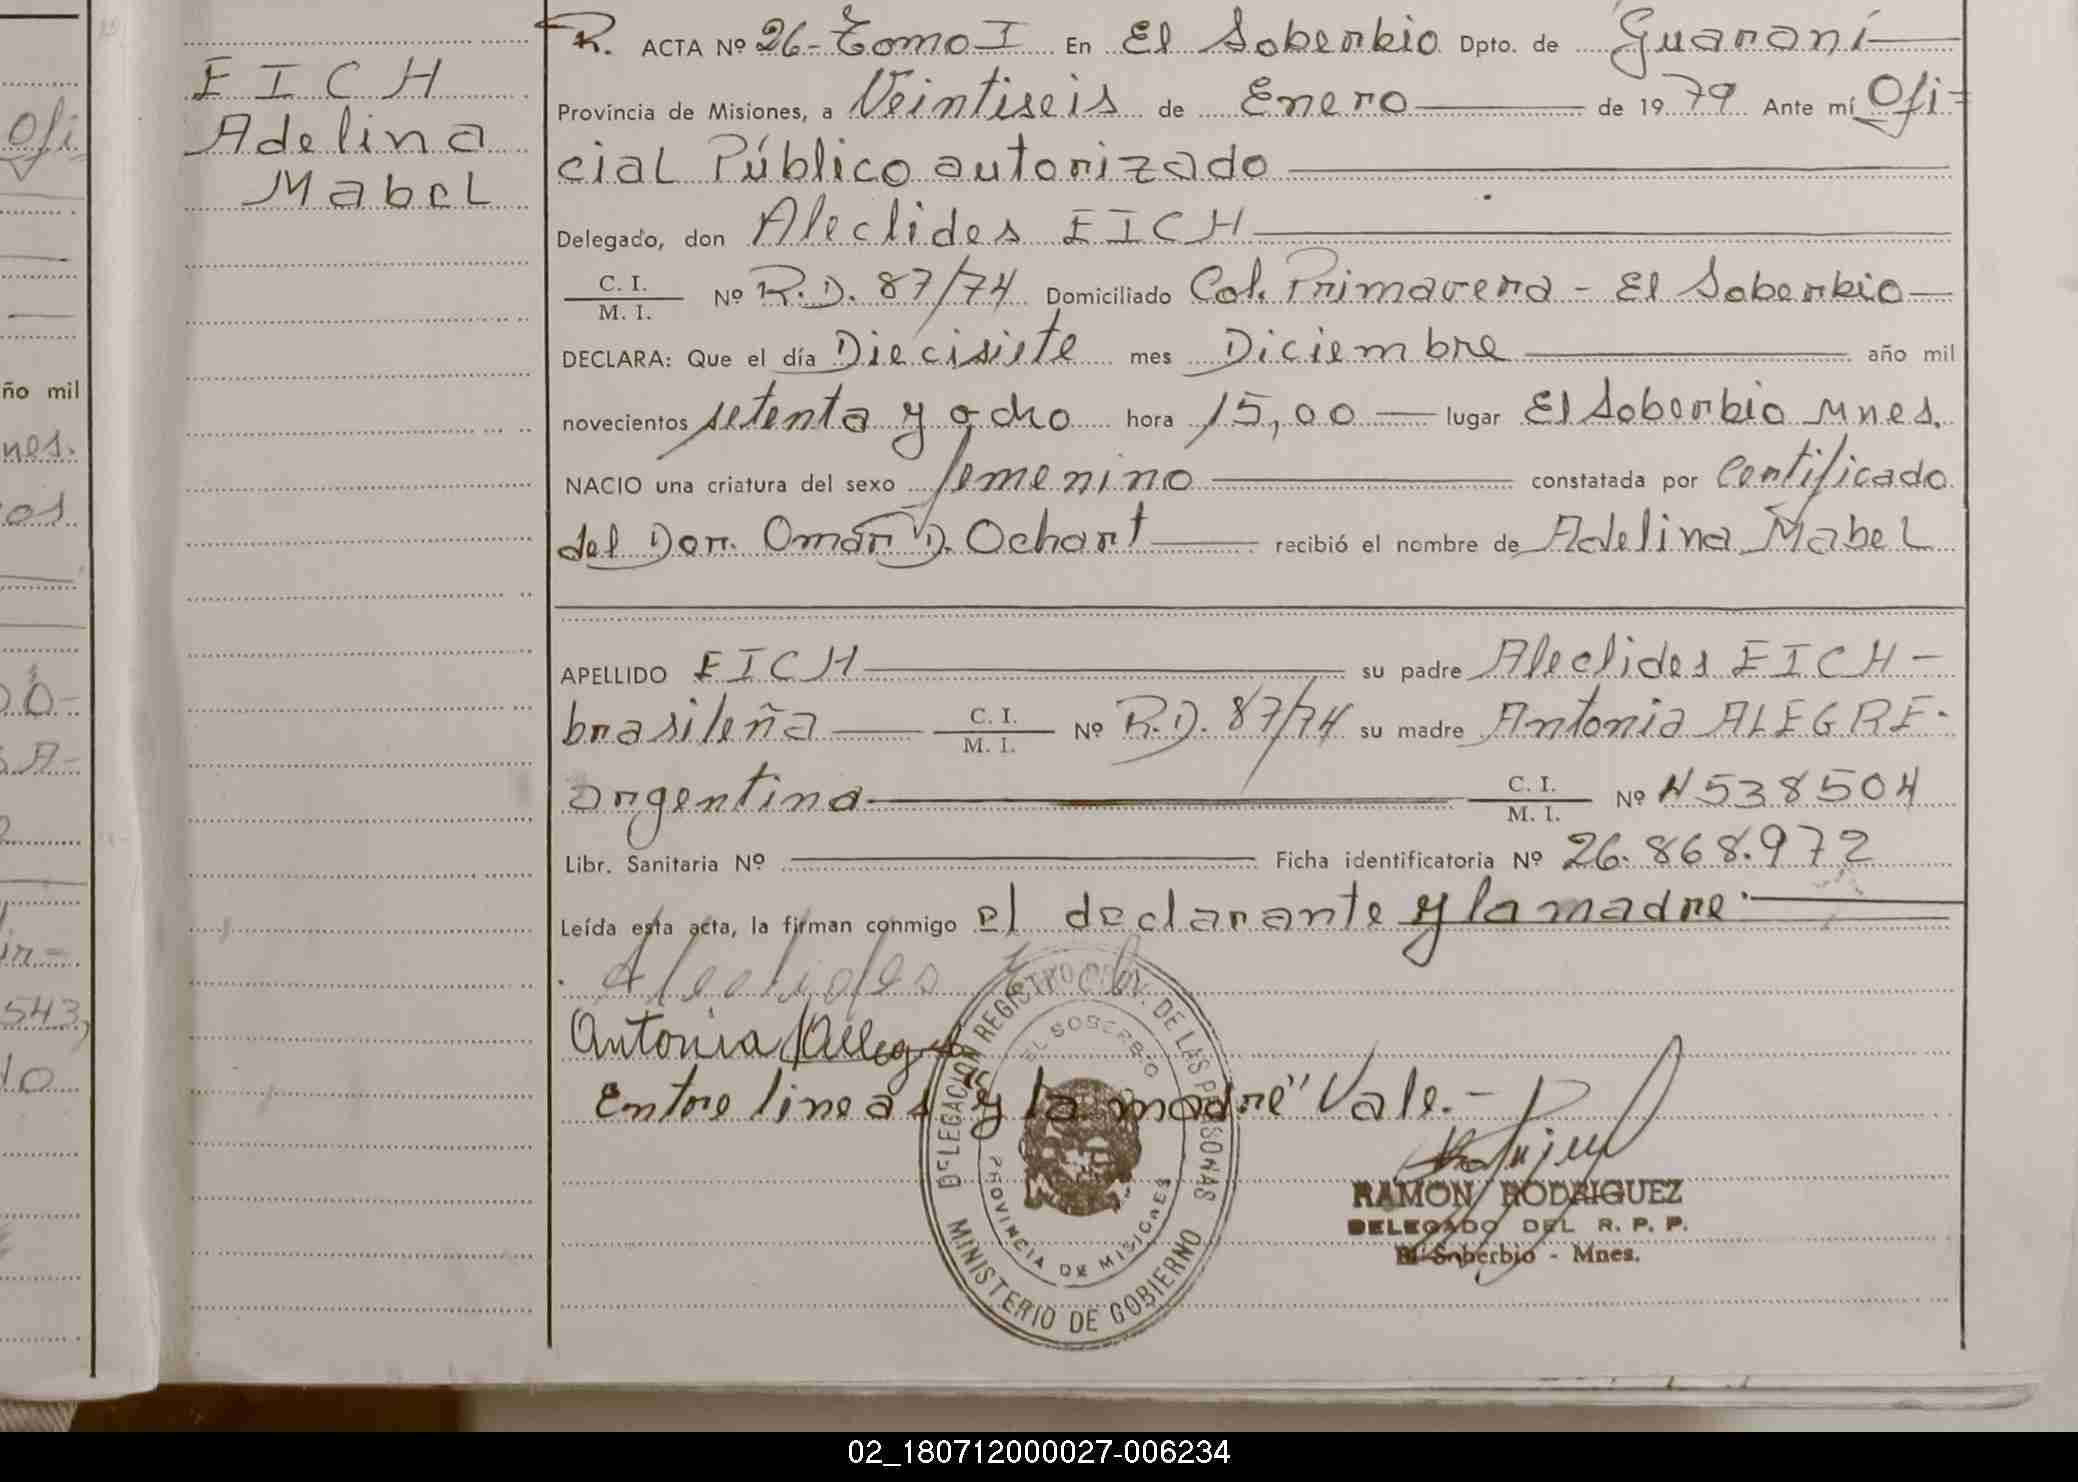 EICH
Adelina
Mabel
R. ACTA Nº 26-Tomo I En El Soberbio Dpto. de Guaraní
Provincia de Misiones, a Veintiseis de Enero de 1979 Ante mí Ofi-
cial Público autorizado
Delegado, don Aleclides EICH
C. I.
M. I.
Nº R.D. 87/74 Domiciliado Col. Primavera - El Soberbio
DECLARA: Que el día Diecisiete mes Diciembre año mil
novecientos setenta y ocho hora 15,00 lugar El Soberbio Mnes.
NACIO una criatura del sexo femenino constatada por Certificado
del Dor. Omar D. Ochart recibió el nombre de Adelina Mabel
APELLIDO EICH su padre Aleclides EICH -
brasileña C. I. M. I. Nº R.D. 87/74 su madre Antonia ALEGRE.
argentina C. I. M. I. Nº 4538504
Libr. Sanitaria Nº Ficha identificatoria Nº 26.868.972
Leída esta acta, la firman conmigo el declarante y la madre.
Aleclides
Antonia Allegre
Entre lineas "y la madre" Vale.-
DELEGACION REGISTRO PROV. DE LAS PERSONAS
EL SOBERBIO
PROVINCIA DE MISIONES
MINISTERIO DE GOBIERNO
RAMON RODRIGUEZ
DELEGADO DEL R. P. P.
El Soberbio - Mnes.
Ofi
ño mil
nes.
os
543,
do
02_180712000027-006234